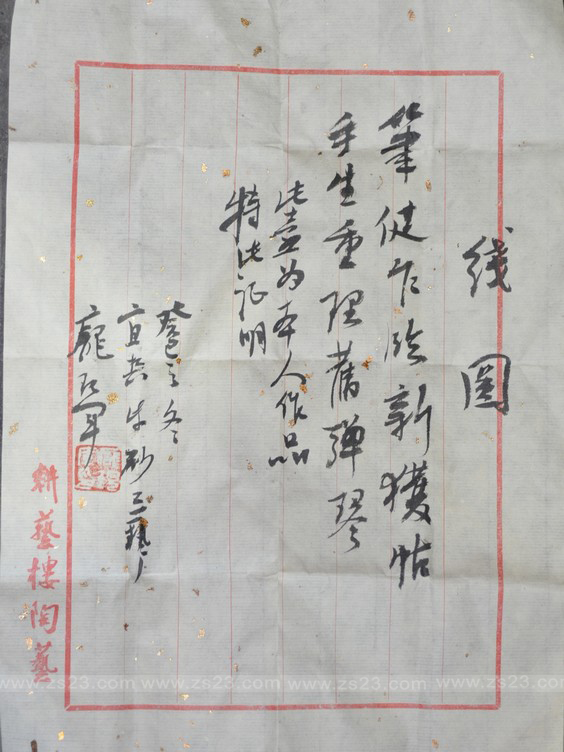 线圆
筆健乍临新獲帖
手生重理舊弹琴
此壶为本人作品
特此证明
癸巳之冬
宜兴紫砂二艺厂
耕藝樓陶藝
www.zs23.com www.zs23.com www.zs23.com www.zs23.com